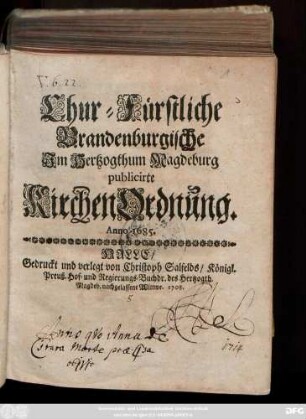 V. 6. 22
Chur-Fürstliche
Brandenburgische
Im Hertzogthum Magdeburg
publicirte
Kirchen Ordnung.
Anno 1685.
HALLE/
Gedruckt und verlegt von Christoph Salfelds/ Königl.
Preuß. Hof- und Regierungs-Buchdr. des Hertzogth.
Magdeb. nachgelassene Witwe. 1708.
Anno Anna